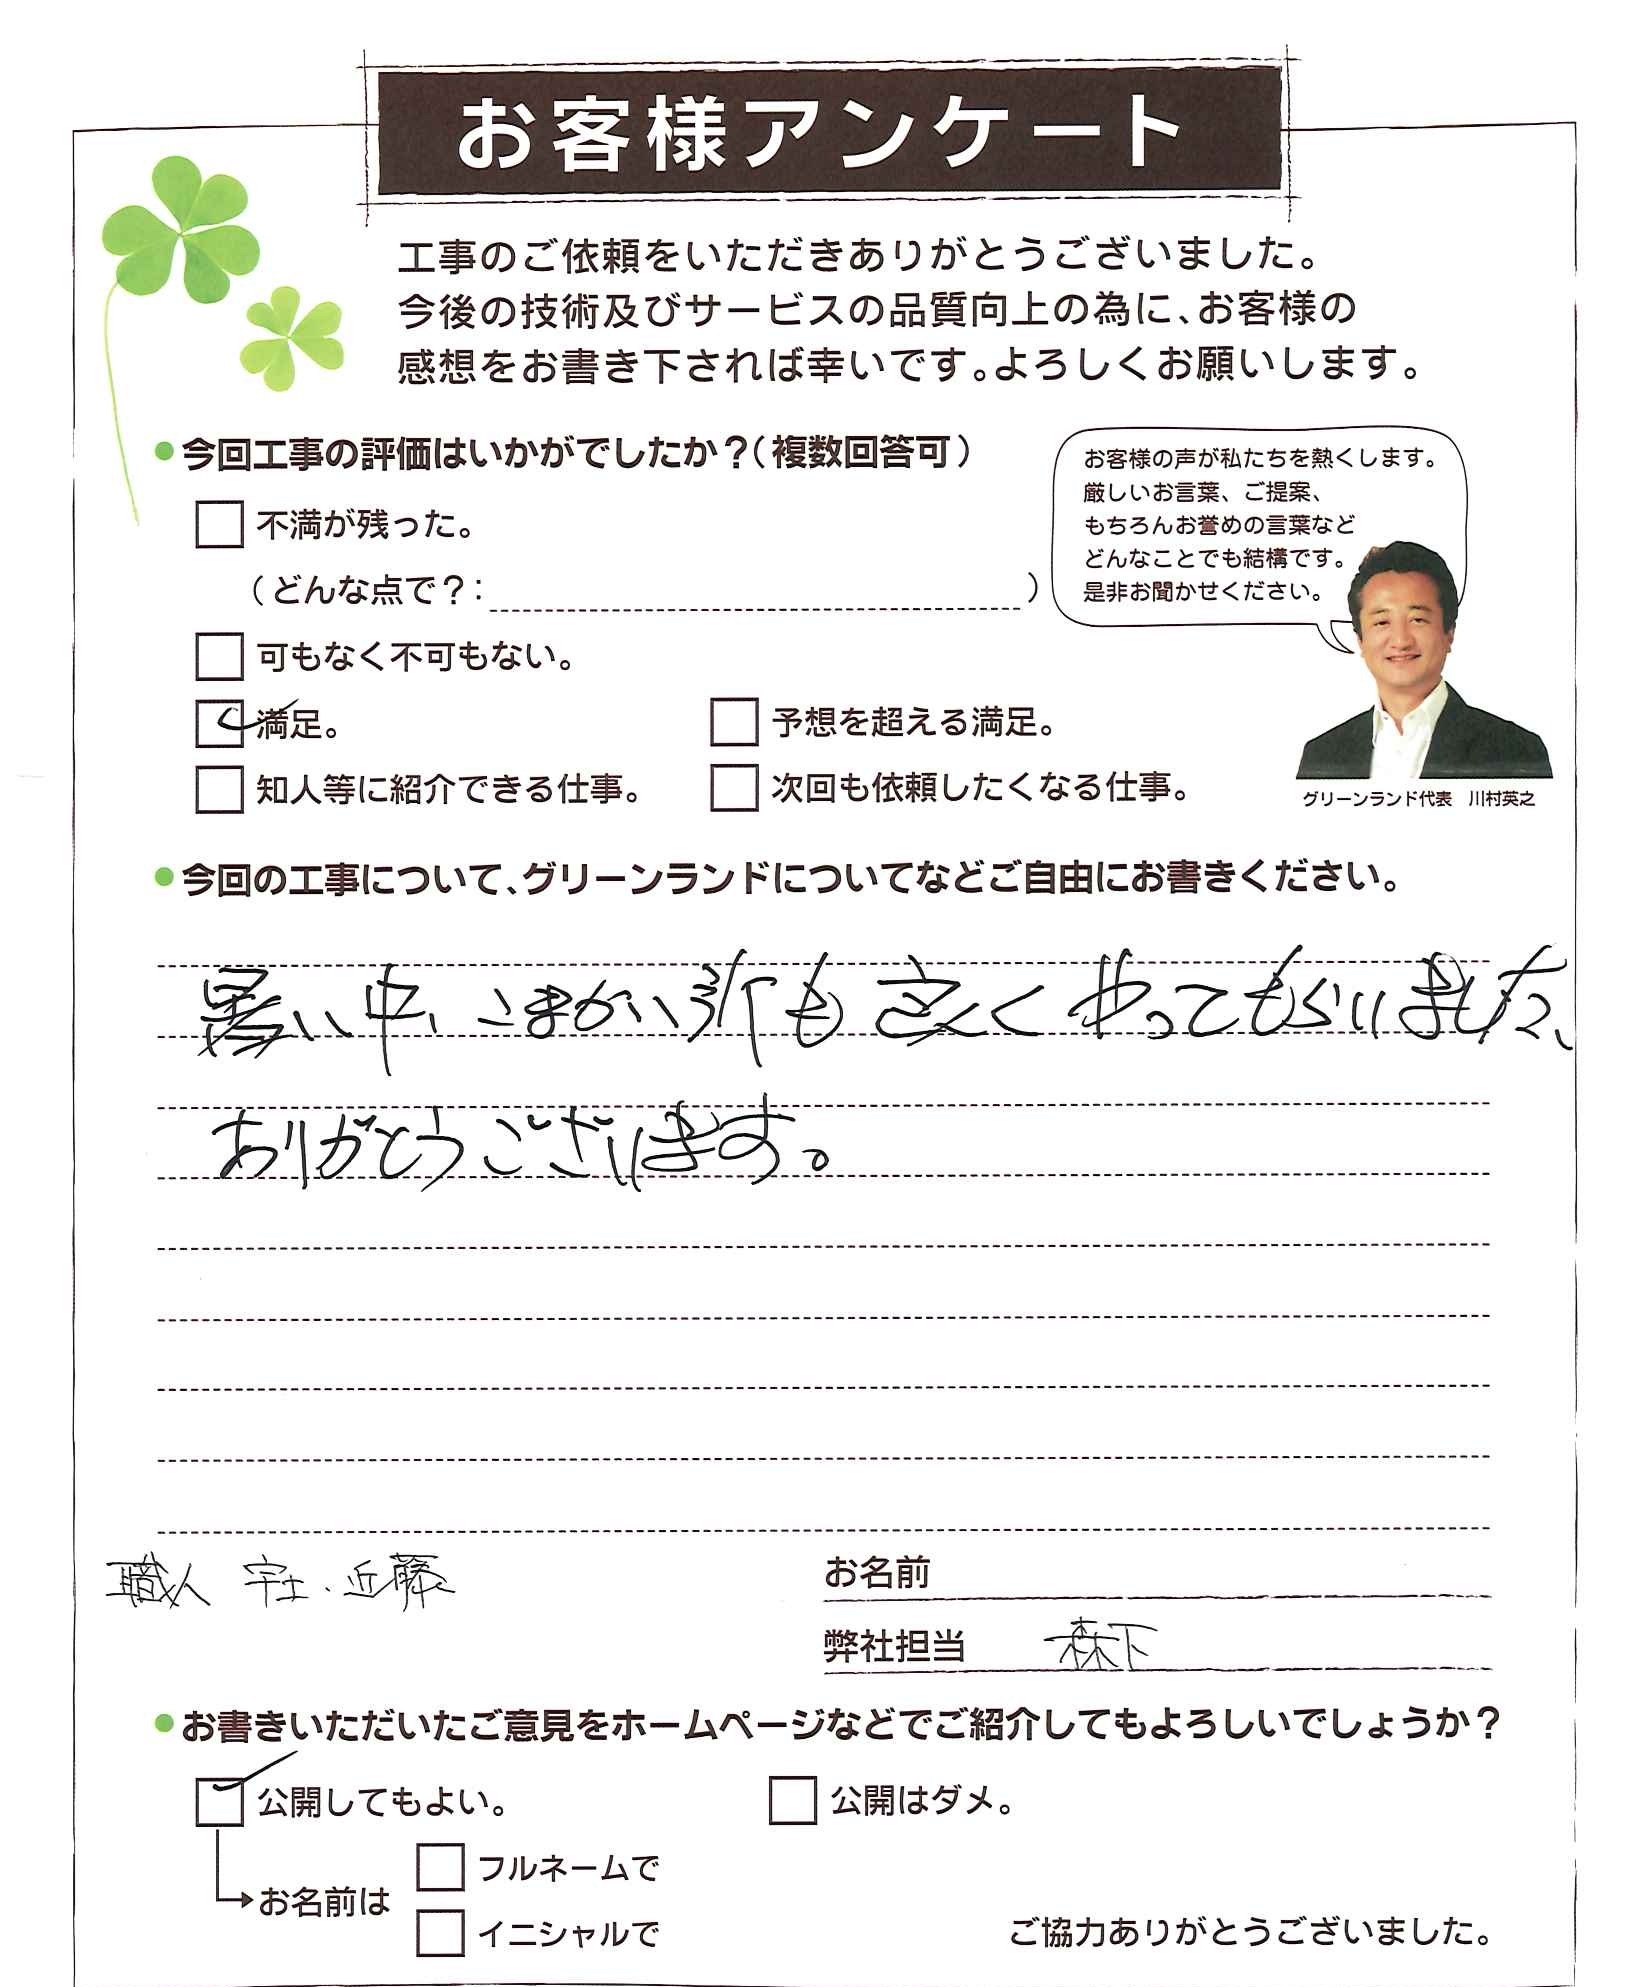 お客様アンケート
工事のご依頼をいただきありがとうございました。
今後の技術及びサービスの品質向上の為に、お客様の
感想をお書き下されば幸いです。よろしくお願いします。
●今回工事の評価はいかがでしたか？（複数回答可）
お客様の声が私たちを熱くします。
厳しいお言葉、ご提案、
もちろんお誉めの言葉など
どんなことでも結構です。
是非お聞かせください。
不満が残った。
（どんな点で？：）
可もなく不可もない。
満足。 予想を超える満足。
知人等に紹介できる仕事。 次回も依頼したくなる仕事。
グリーンランド代表 川村英之
●今回の工事について、グリーンランドについてなどご自由にお書きください。
暑い中、こまかい所も良くやってもらいました、
ありがとうございます。
職人 宇土・近藤
お名前
弊社担当 森下
●お書きいただいたご意見をホームページなどでご紹介してもよろしいでしょうか？
公開してもよい。 公開はダメ。
お名前は
フルネームで
イニシャルで
ご協力ありがとうございました。